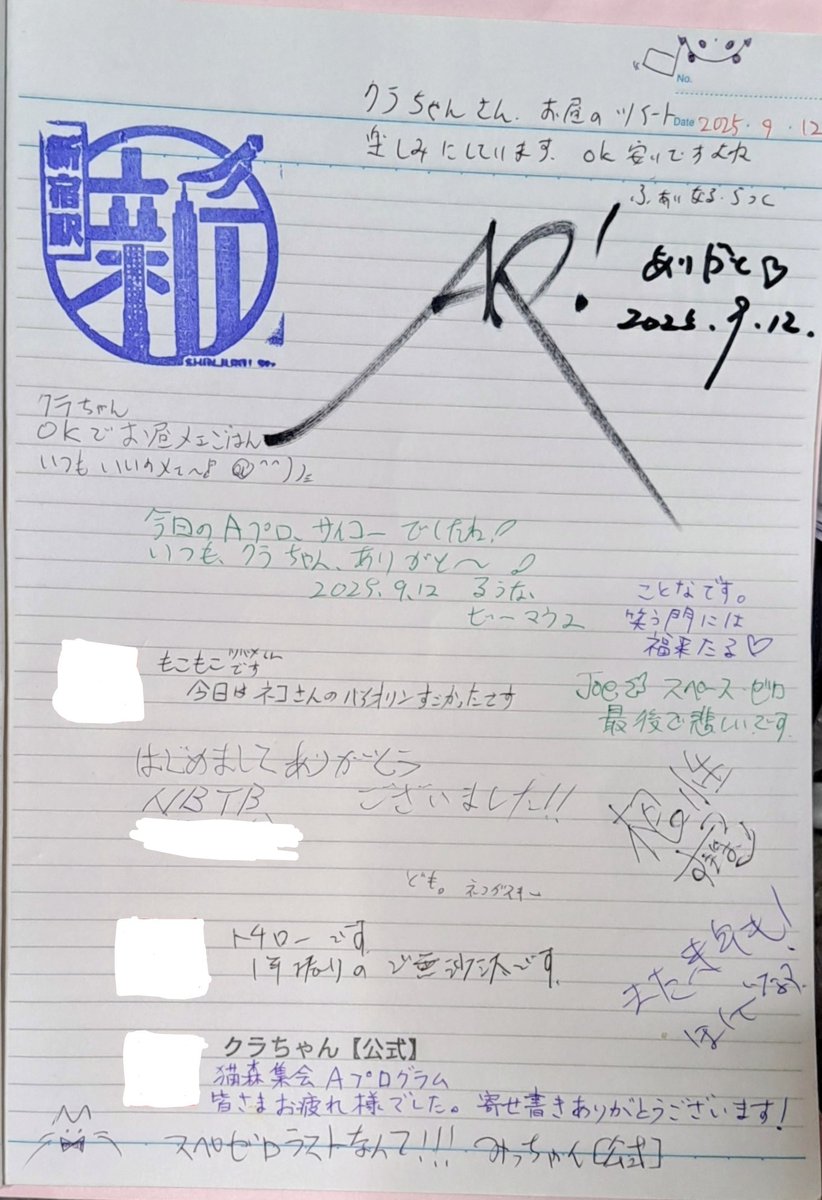 No.
クラちゃんさん、お昼のツイート
Date 2025.9.12
楽しみにしています。ok安いですよね
ふぁいなる・らっく
新宿駅
新
SHINJUKU
AR!
ありがと
2025.9.12.
クラちゃん
OKでお昼メェごはん
いつもいいのメェ〜
今日のAプロ、サイコーでしたね!
いつも、クラちゃん、ありがと〜
2025.9.12 るうな
ビーマウス
ことなです。
笑う門には
福来たる♡
もこもこ
です
今日はネコさんのバイオリンすごかったです
Joe スペース・ゼロ
最後で悲しいです
はじめましてありがとう
NBTB ございました!!
ども。
トチローです
1年振りのご無沙汰です。
クラちゃん【公式】
猫森集会Aプログラム
皆さまお疲れ様でした。寄せ書きありがとうございます!
スペゼロラストなんて!!! みっちゃん[公式]